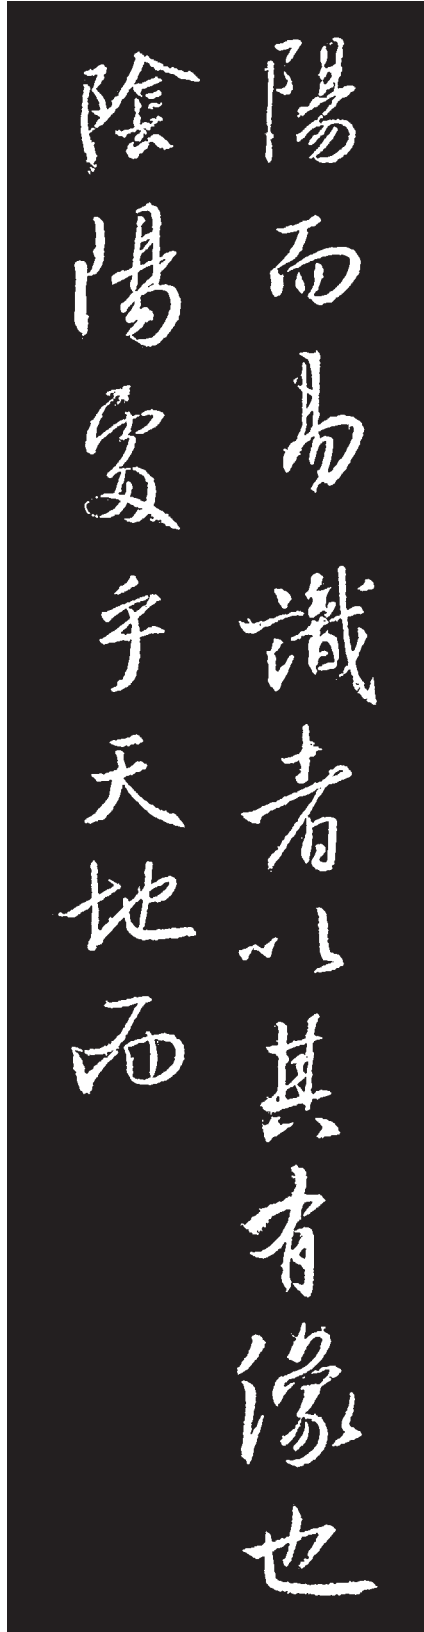 陽而易識者以其有像也
陰陽處乎天地而